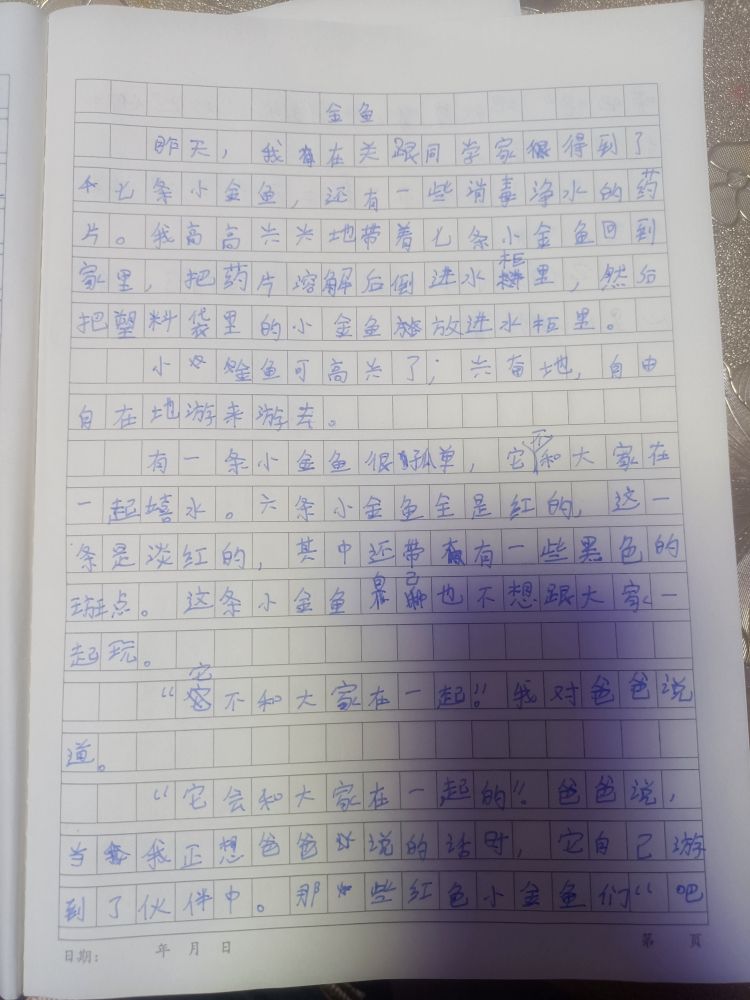 金鱼
昨天，我在关跟同学家得到了
七条小金鱼，还有一些消毒净水的药
片。我高高兴兴地带着七条小金鱼回到
家里，把药片溶解后倒进水柜里，然后
把塑料袋里的小金鱼放进水柜里。
小金鱼可高兴了；兴奋地，自由
自在地游来游去。
有一条小金鱼很孤单，它不和大家在
一起嬉水。六条小金鱼全是红的，这一
条是淡红的，其中还带有一些黑色的
斑点。这条小金鱼自己也不想跟大家一
起玩。
“它不和大家在一起！”我对爸爸说
道。
“它会和大家在一起的”。爸爸说，
当我正想爸爸说的话时，它自己游
到了伙伴中。那些红色小金鱼们“吧
日期： 年 月 日 第 页